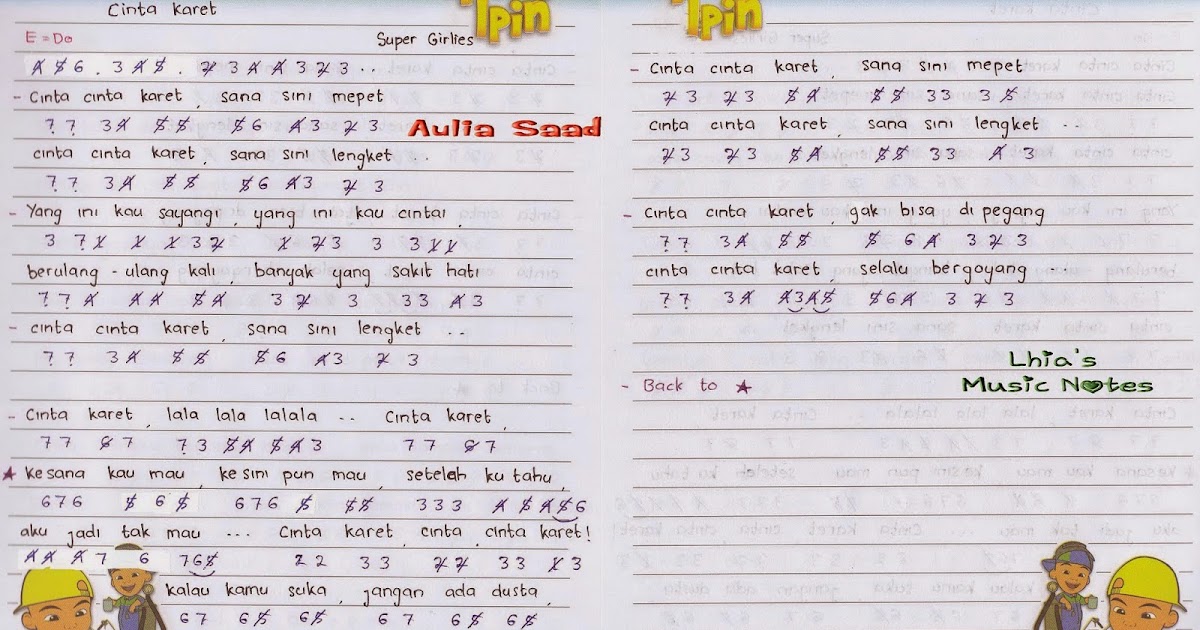 Cinta Karet
Ipin
E = Do
Super Girlies
4̸ 5̸ 6 . 3 4̸ 5̸ . 2̸ 3 4̸ 4̸ 3 2̸ 3 . .
- Cinta cinta karet, sana sini mepet
7̣ 7̣ 3 4̸ 5̸ 5̸ 5̸ 6 4̸ 3 2̸ 3
Aulia Saad
cinta cinta karet, sana sini lengket . .
7̣ 7̣ 3 4̸ 5̸ 5̸ 5̸ 6 4̸ 3 2̸ 3
- Yang ini kau sayangi, yang ini kau cintai,
3 7̣ 1̸ 1̸ 1̸ 3 2̸ 1̸ 2̸ 3 3 3 1̸ 1̸
berulang - ulang kali, banyak yang sakit hati
7̣ 7̣ 4̸ 4̸ 4̸ 5̸ 4̸ 3 2̸ 3 3 3 4̸ 3
- cinta cinta karet, sana sini lengket . .
7̣ 7̣ 3 4̸ 5̸ 5̸ 5̸ 6 4̸ 3 2̸ 3
- Cinta karet, lala lala lalala . . Cinta karet,
7 7 6̸ 7 7̣ 3 5̸ 4̸ 5̸ 4̸ 3 7 7 6̸ 7
★ Kesana kau mau, kesini pun mau, setelah ku tahu,
6 7 6 5̸ 6 5̸ 6 7 6 5̸ 5̸ 5̸ 3 3 3 4̸ 5̸ 4̸ 5̸ 6
aku jadi tak mau ... Cinta karet, cinta, cinta karet!
4̸ 4̸ 4̸ 7 6 7 6 5̸ 2 2 3 3 2̸ 2̸ 3 3 1̸ 3
kalau kamu suka, jangan ada dusta,
6 7 6 5̸ 6 5̸ 6 7 6 5̸ 6 5̸
Ipin
- Cinta cinta karet, sana sini mepet
2̸ 3 2̸ 3 5̸ 4̸ 5̸ 5̸ 3 3 3 5̸
cinta cinta karet, sana sini lengket . .
2̸ 3 2̸ 3 5̸ 4̸ 5̸ 5̸ 3 3 4̸ 3
- Cinta cinta karet, gak bisa di pegang
7̣ 7̣ 3 4̸ 5̸ 5̸ 5̸ 6 4̸ 3 2̸ 3
cinta cinta karet, selalu bergoyang . .
7̣ 7̣ 3 4̸ 4̸ 3 4̸ 5̸ 5̸ 6 4̸ 3 2̸ 3
Lhia's
Music Notes
- Back to ★